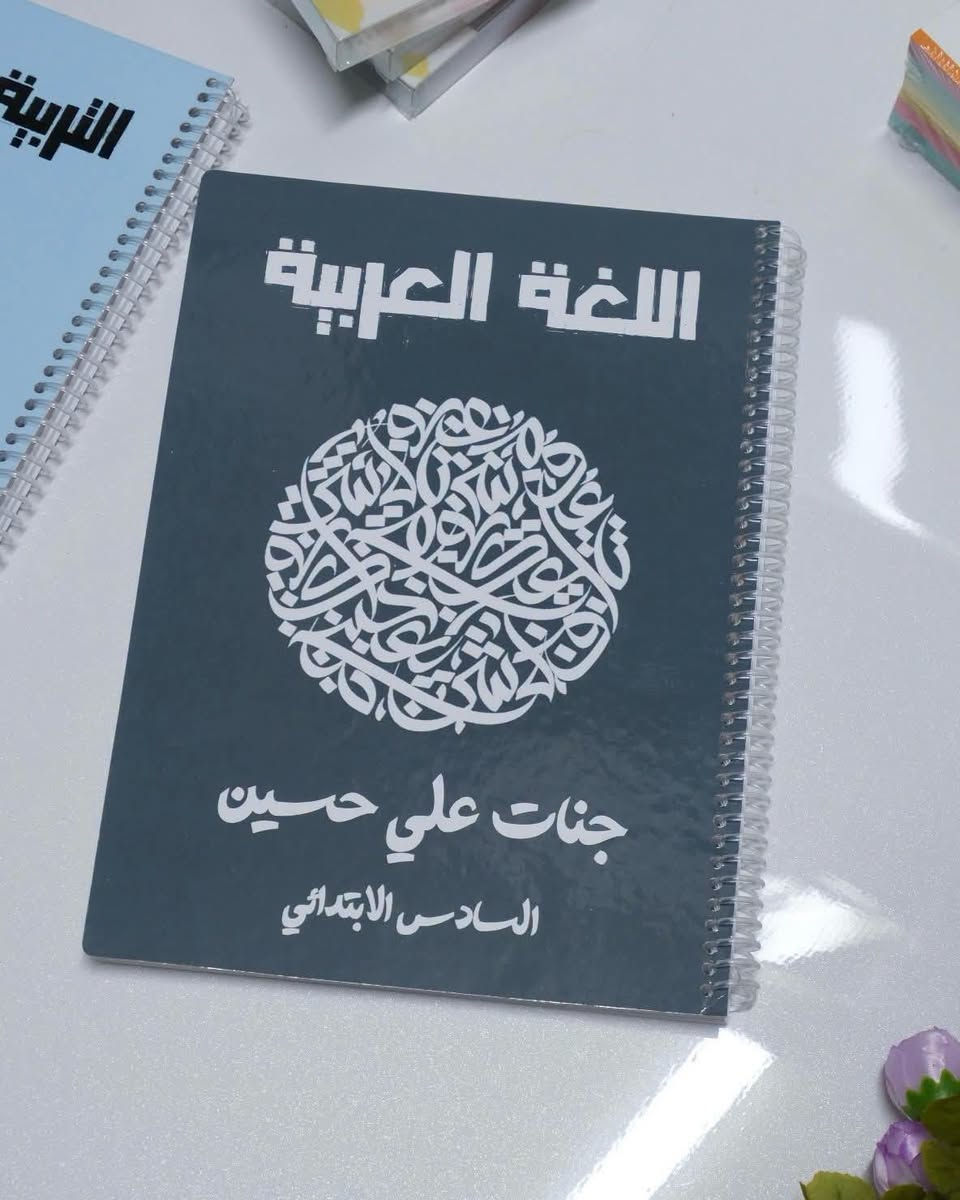 اللغة العربية
جنات علي حسين
السادس الابتدائي
التربية